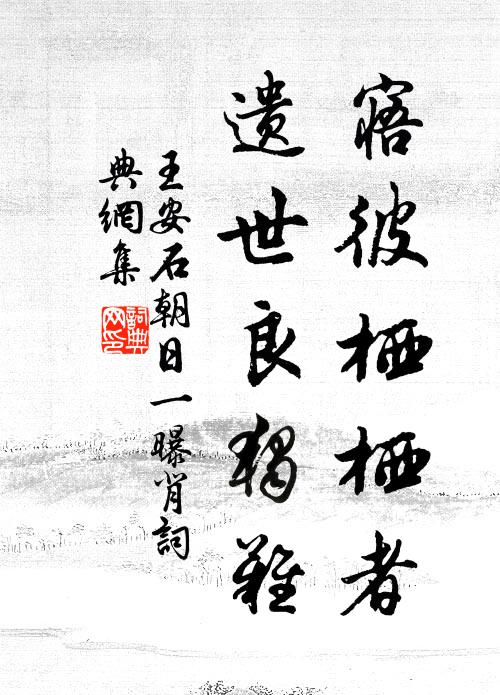 寤彼栖栖者
遺世良獨難
王安石朝日一曝背詞
典網集
詞典
网印